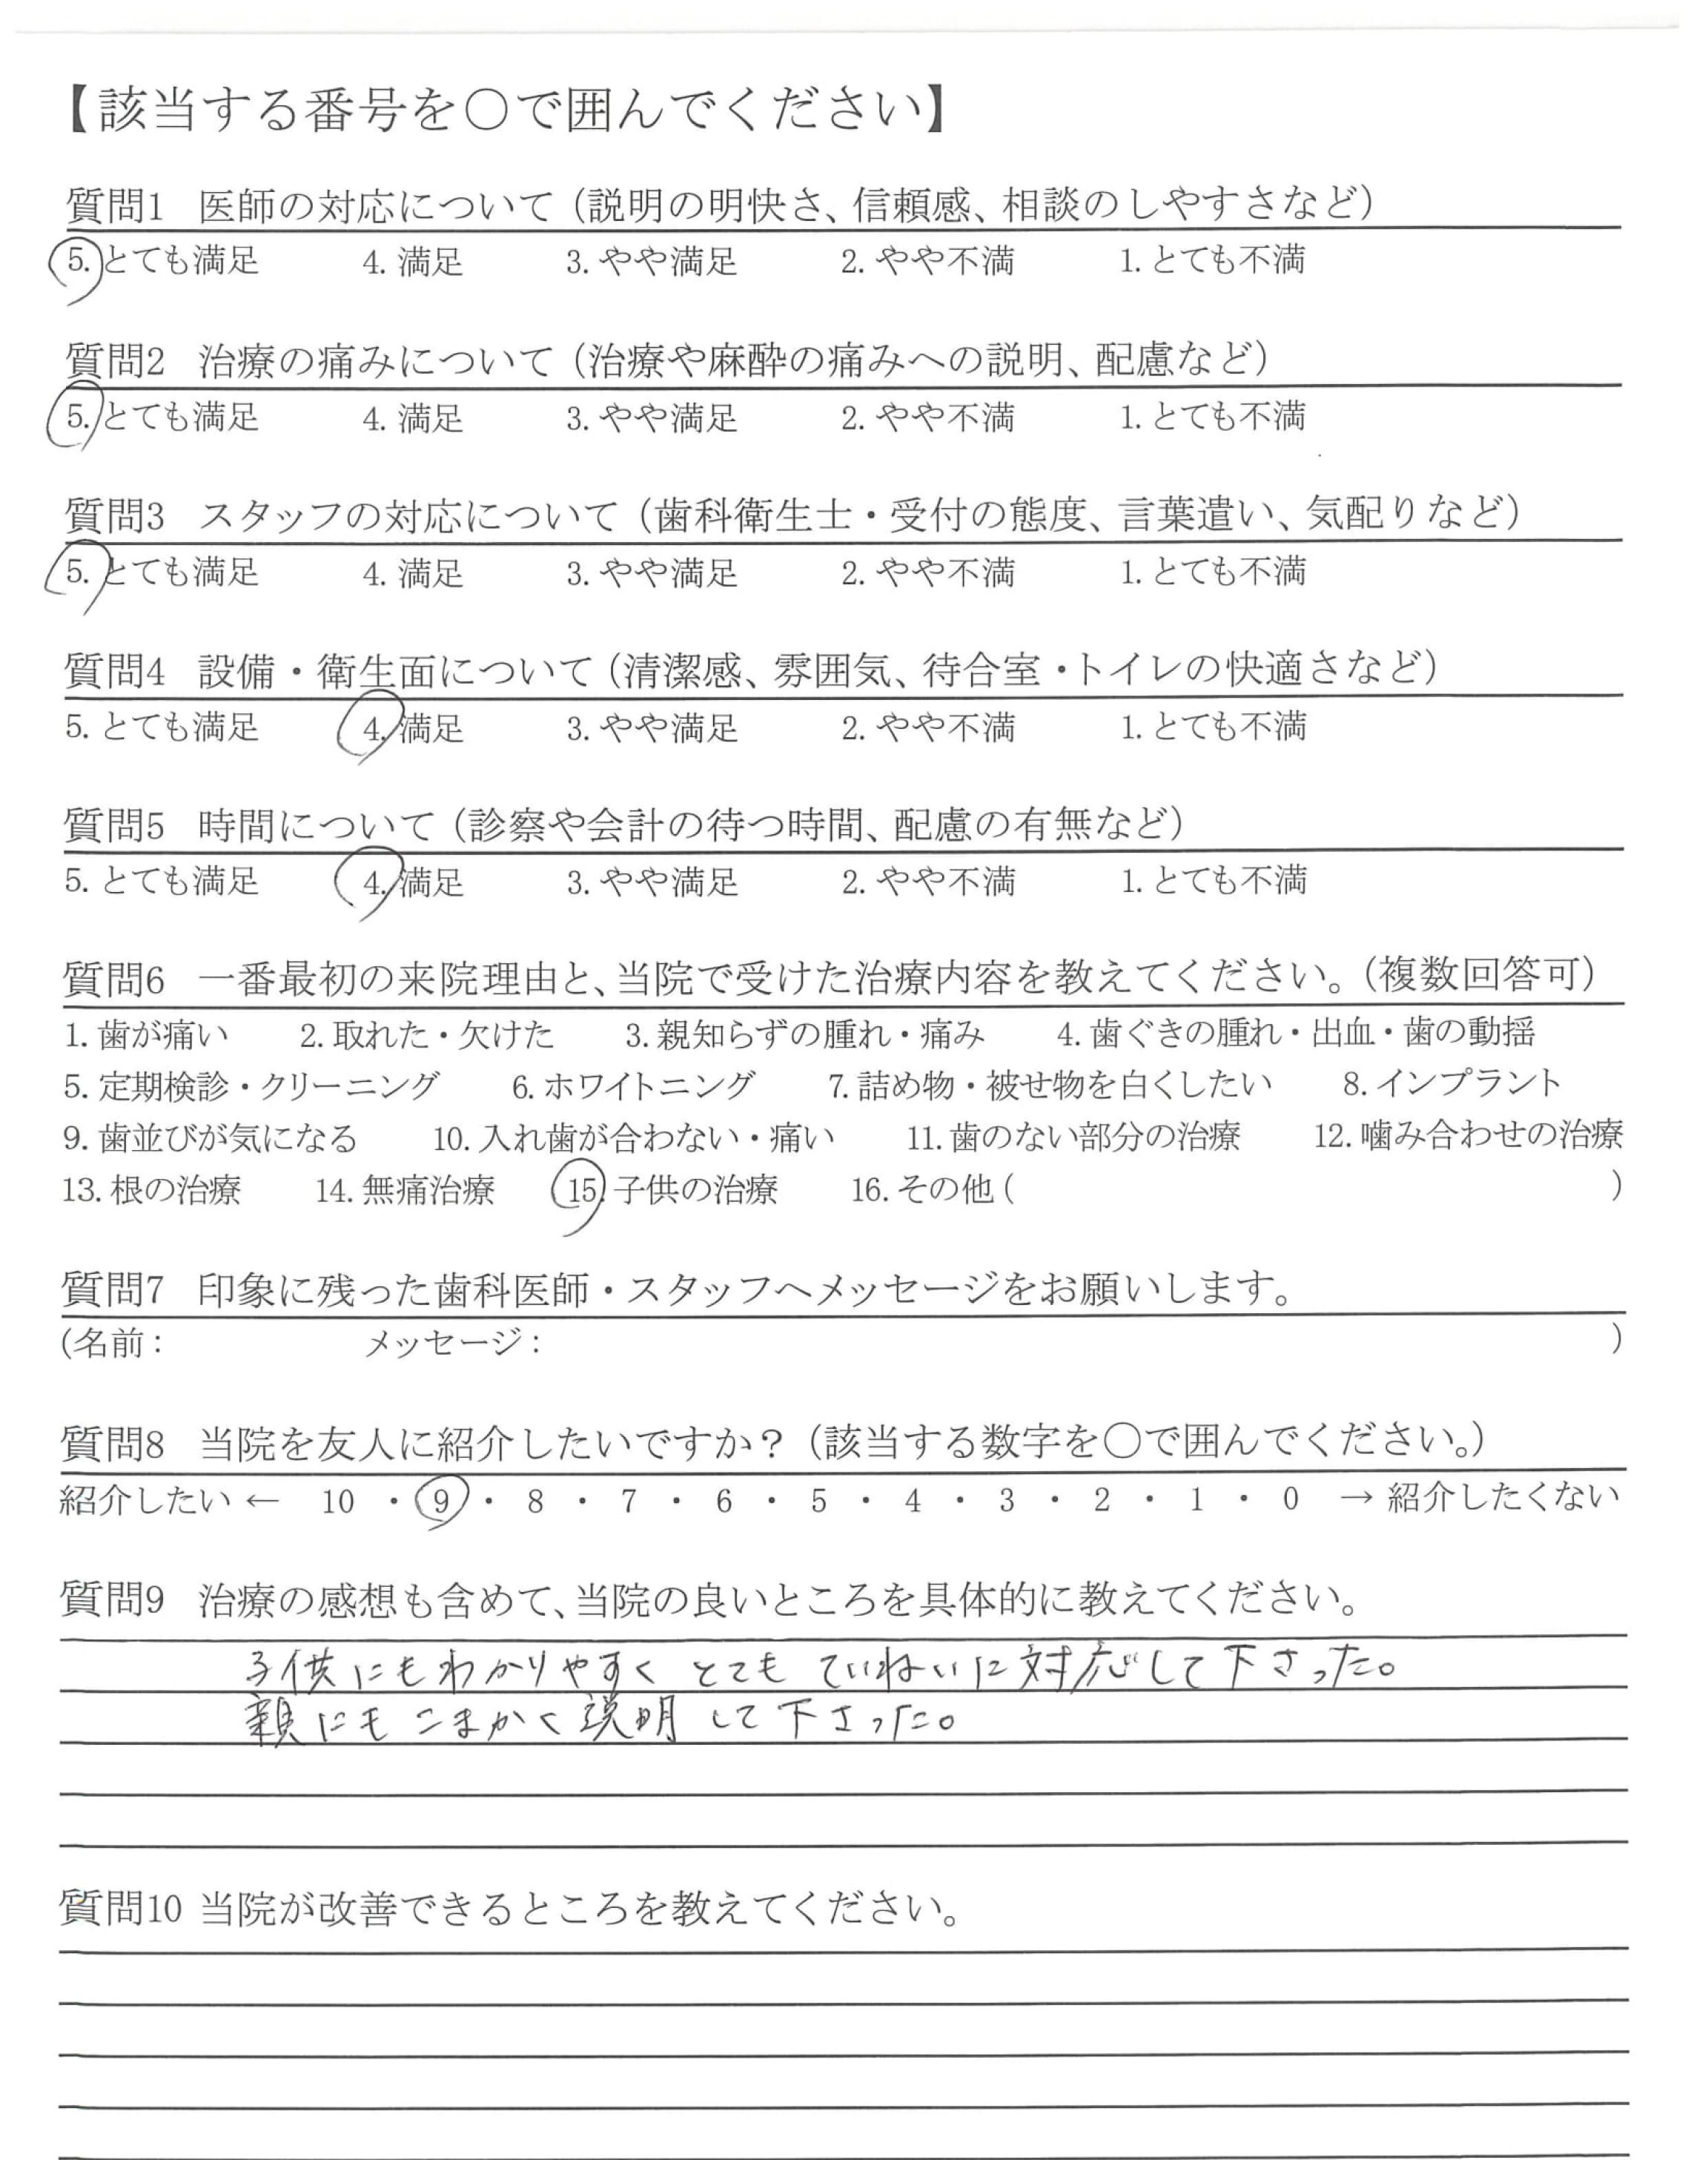 【該当する番号を○で囲んでください】
質問1 医師の対応について（説明の明快さ、信頼感、相談のしやすさなど）
5. とても満足 4. 満足 3. やや満足 2. やや不満 1. とても不満
質問2 治療の痛みについて（治療や麻酔の痛みへの説明、配慮など）
5. とても満足 4. 満足 3. やや満足 2. やや不満 1. とても不満
質問3 スタッフの対応について（歯科衛生士・受付の態度、言葉遣い、気配りなど）
5. とても満足 4. 満足 3. やや満足 2. やや不満 1. とても不満
質問4 設備・衛生面について（清潔感、雰囲気、待合室・トイレの快適さなど）
5. とても満足 4. 満足 3. やや満足 2. やや不満 1. とても不満
質問5 時間について（診察や会計の待つ時間、配慮の有無など）
5. とても満足 4. 満足 3. やや満足 2. やや不満 1. とても不満
質問6 一番最初の来院理由と、当院で受けた治療内容を教えてください。（複数回答可）
1. 歯が痛い 2. 取れた・欠けた 3. 親知らずの腫れ・痛み 4. 歯ぐきの腫れ・出血・歯の動揺
5. 定期検診・クリーニング 6. ホワイトニング 7. 詰め物・被せ物を白くしたい 8. インプラント
9. 歯並びが気になる 10. 入れ歯が合わない・痛い 11. 歯のない部分の治療 12. 噛み合わせの治療
13. 根の治療 14. 無痛治療 15. 子供の治療 16. その他（ ）
質問7 印象に残った歯科医師・スタッフへメッセージをお願いします。
（名前： メッセージ： ）
質問8 当院を友人に紹介したいですか？（該当する数字を○で囲んでください。）
紹介したい ← 10 ・ 9 ・ 8 ・ 7 ・ 6 ・ 5 ・ 4 ・ 3 ・ 2 ・ 1 ・ 0 → 紹介したくない
質問9 治療の感想も含めて、当院の良いところを具体的に教えてください。
子供にもわかりやすく とても ていねいに対応して下さった。
親にも こまかく説明して下さった。
質問10 当院が改善できるところを教えてください。